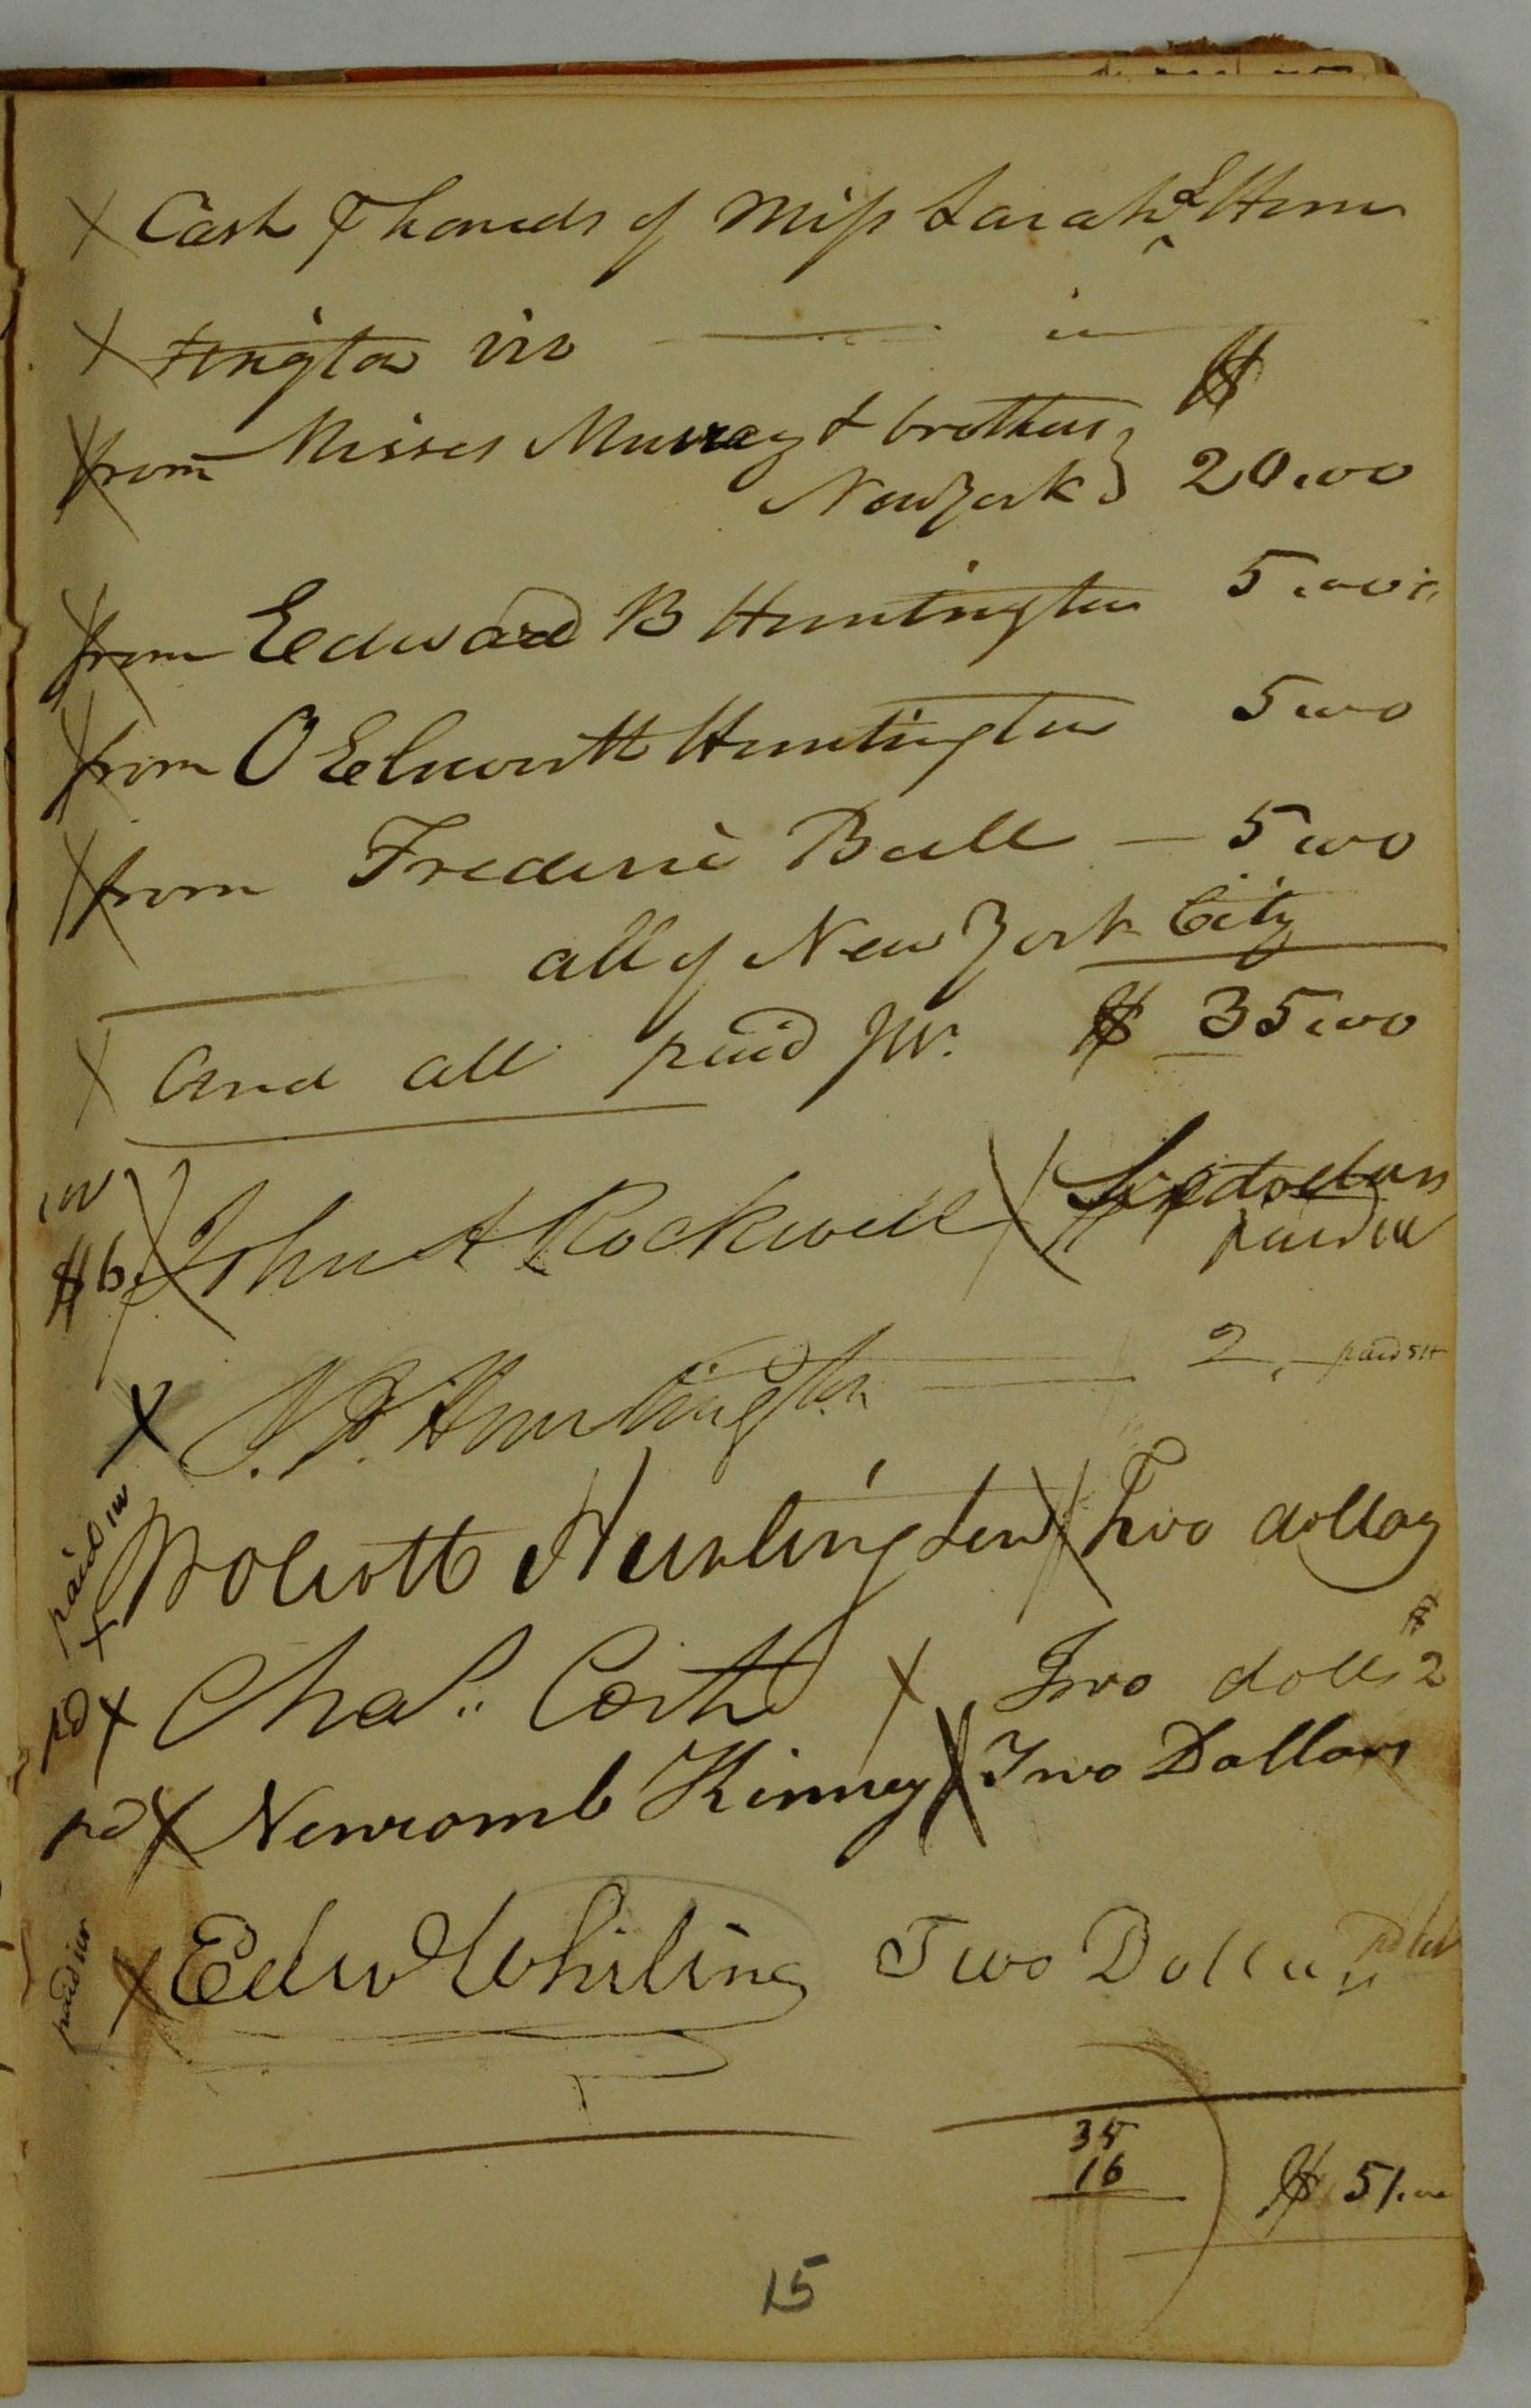 X Cash ⅌ hands of Miss Sarah L Hun
X tington viz
X from Misses Murray & brothers } $
New York } 20.00
X from Edward B Huntington 5.00
X from O Elsworth Huntington 5.00
X from Frederic Bull — 5.00
all of New York City
X And all paid JW. $ 35.00
$6. X John A Rockwell X Six dollars
paid
X J. P. Huntington 2. paid SH
paid JW X Wolcott Huntington X Two dollars
pd X Chas. Coit X Two dolls $2
pd X Newcomb Kinney X Two Dollars
paid JW X Edw Whiting Two Dollars pd
35
16
$ 51.00
15